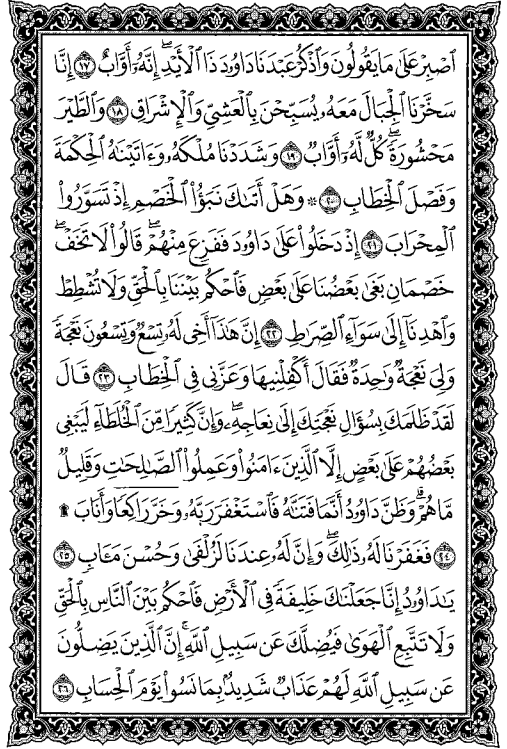 ٱصْبِرْ عَلَىٰ مَا يَقُولُونَ وَٱذْكُرْ عَبْدَنَا دَاوُۥدَ ذَا ٱلْأَيْدِ ۖ إِنَّهُۥٓ أَوَّابٌ ﴿١٧﴾ إِنَّا
سَخَّرْنَا ٱلْجِبَالَ مَعَهُۥ يُسَبِّحْنَ بِٱلْعَشِىِّ وَٱلْإِشْرَاقِ ﴿١٨﴾ وَٱلطَّيْرَ
مَحْشُورَةً ۖ كُلٌّ لَّهُۥٓ أَوَّابٌ ﴿١٩﴾ وَشَدَدْنَا مُلْكَهُۥ وَءَاتَيْنَـٰهُ ٱلْحِكْمَةَ
وَفَصْلَ ٱلْخِطَابِ ﴿٢٠﴾ ۞ وَهَلْ أَتَىٰكَ نَبَؤُا۟ ٱلْخَصْمِ إِذْ تَسَوَّرُوا۟
ٱلْمِحْرَابَ ﴿٢١﴾ إِذْ دَخَلُوا۟ عَلَىٰ دَاوُۥدَ فَفَزِعَ مِنْهُمْ ۖ قَالُوا۟ لَا تَخَفْ ۖ
خَصْمَانِ بَغَىٰ بَعْضُنَا عَلَىٰ بَعْضٍ فَٱحْكُم بَيْنَنَا بِٱلْحَقِّ وَلَا تُشْطِطْ
وَٱهْدِنَآ إِلَىٰ سَوَآءِ ٱلصِّرَٰطِ ﴿٢٢﴾ إِنَّ هَـٰذَآ أَخِى لَهُۥ تِسْعٌ وَتِسْعُونَ نَعْجَةً
وَلِىَ نَعْجَةٌ وَٰحِدَةٌ فَقَالَ أَكْفِلْنِيهَا وَعَزَّنِى فِى ٱلْخِطَابِ ﴿٢٣﴾ قَالَ
لَقَدْ ظَلَمَكَ بِسُؤَالِ نَعْجَتِكَ إِلَىٰ نِعَاجِهِۦ ۖ وَإِنَّ كَثِيرًا مِّنَ ٱلْخُلَطَآءِ لَيَبْغِى
بَعْضُهُمْ عَلَىٰ بَعْضٍ إِلَّا ٱلَّذِينَ ءَامَنُوا۟ وَعَمِلُوا۟ ٱلصَّـٰلِحَـٰتِ وَقَلِيلٌ
مَّا هُمْ ۗ وَظَنَّ دَاوُۥدُ أَنَّمَا فَتَنَّـٰهُ فَٱسْتَغْفَرَ رَبَّهُۥ وَخَرَّ رَاكِعًا وَأَنَابَ ۩
﴿٢٤﴾ فَغَفَرْنَا لَهُۥ ذَٰلِكَ ۖ وَإِنَّ لَهُۥ عِندَنَا لَزُلْفَىٰ وَحُسْنَ مَـَٔابٍ ﴿٢٥﴾
يَـٰدَاوُۥدُ إِنَّا جَعَلْنَـٰكَ خَلِيفَةً فِى ٱلْأَرْضِ فَٱحْكُم بَيْنَ ٱلنَّاسِ بِٱلْحَقِّ
وَلَا تَتَّبِعِ ٱلْهَوَىٰ فَيُضِلَّكَ عَن سَبِيلِ ٱللَّهِ ۚ إِنَّ ٱلَّذِينَ يَضِلُّونَ
عَن سَبِيلِ ٱللَّهِ لَهُمْ عَذَابٌ شَدِيدٌۢ بِمَا نَسُوا۟ يَوْمَ ٱلْحِسَابِ ﴿٢٦﴾